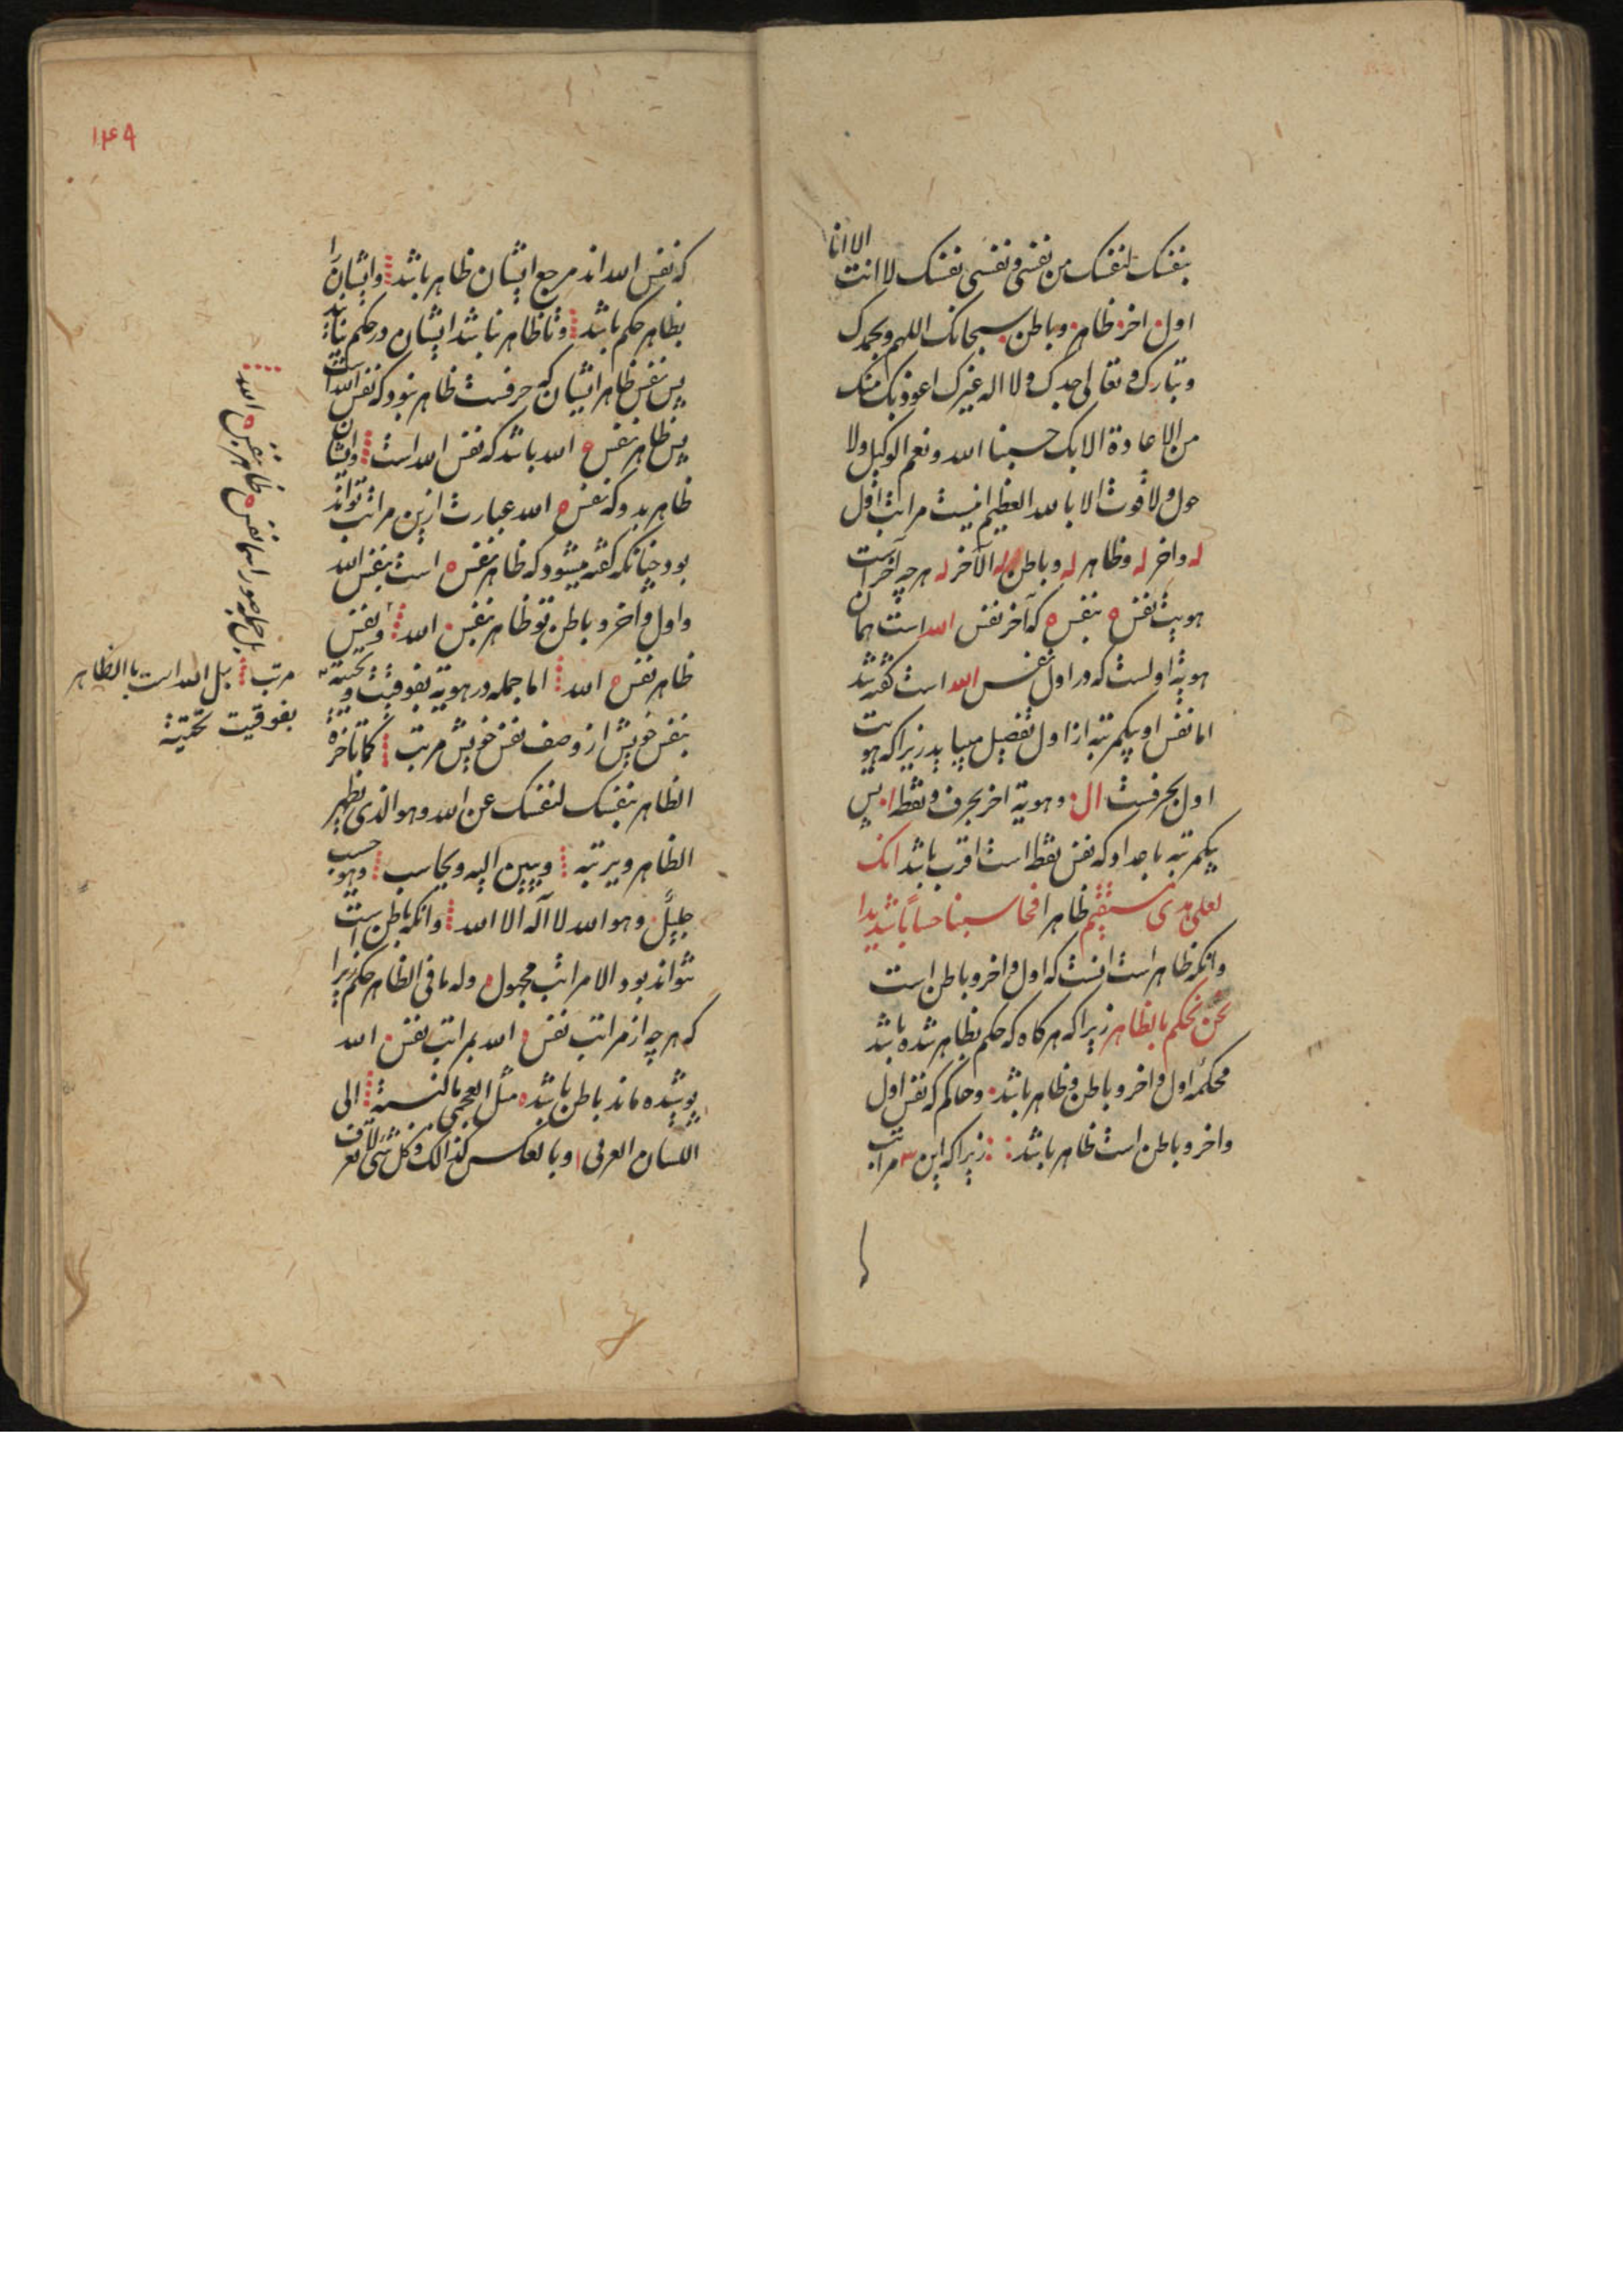 بنفسک لنفسک من نفسی و نفسی نفسک لا انت الا انا
اول اخر ظاهر و باطن سبحانک اللهم و بحمدک
و تبارک و تعالی جدک و لا اله غیرک اعوذ بک منک
من الاعادة الا بک حسبنا الله و نعم الوکیل و لا
حول و لا قوت الا بالله العظیم انیست مراتب اول
له و اخر له و ظاهر له و باطن له الآخر له هر چه آخر است
هویت نفس ه بنفس ه که آخر نفس الله است همان
هویة اولست که در اول نفس الله است گفته شد
اما نفس او یکمرتبه از اول تفصیل میابد زیرا که هویت
اول بحرفست ال و هویة اخر بحرف و نقطه ا پس
یکمرتبه باعداد که نفس نقطه است اقرب باشد انک
لعلی هدی مستقیم ظاهرا فحاسبنا حساباً شدیدا
و آنکه ظاهر است انست که اول و اخر و باطن است
نحن نحکم بالظاهر زیرا که هر کاه که حکم بظاهر شده باشد
محکمه اول و اخر و باطن و ظاهر باشد و حاکم که نفس اول
و اخر و باطن است ظاهر باشد زیرا که این ۳ مراتب
۱۴۹
که نفس الله اند مرجع ایشان ظاهر باشد و ایشان را
بظاهر حکم باشد و تا ظاهر نباشد ایشان در حکم نیاید
پس نفس ظاهر ایشان که حرفست ظاهر بود که نفس الله است
پس ظاهر نفس ه الله باشد که نفس الله است و ایشان
ظاهر بدو که نفس ه الله عبارت ازین مراتب تواند
بود چنانکه گفته میشود که ظاهر نفس ه است بنفس الله
و اول و اخر و باطن تو ظاهر نفس الله و نفس
ظاهر نفس ه الله اما جمله در هویة بفوقیت و تحتیة
بنفس خویش از وصف نفس خویش مرتب کما تاخره
الظاهر بنفسک لنفسک عن الله و هو الذی یظهر
الظاهر و یرتبه و یبین الیه و یحاسب و هو حسب
جلیل و هو الله لا اله الا الله و آنکه باطن است
نتواند بود الا مراتب مجهول و له ما فی الظاهر حکم زیرا
که هر چه از مراتب نفس ه الله بمراتب نفس الله
پوشیده ماند باطن باشد مثل العجمی بالنسبة الی
اللسان العربی و بالعکس کذالک و کل شیء لا تعرف
بل جمله صور اسما نفس ه ظاهر نفس ه الله
مرتب بل الله است با الظاهر
بفوقیت تحتیة